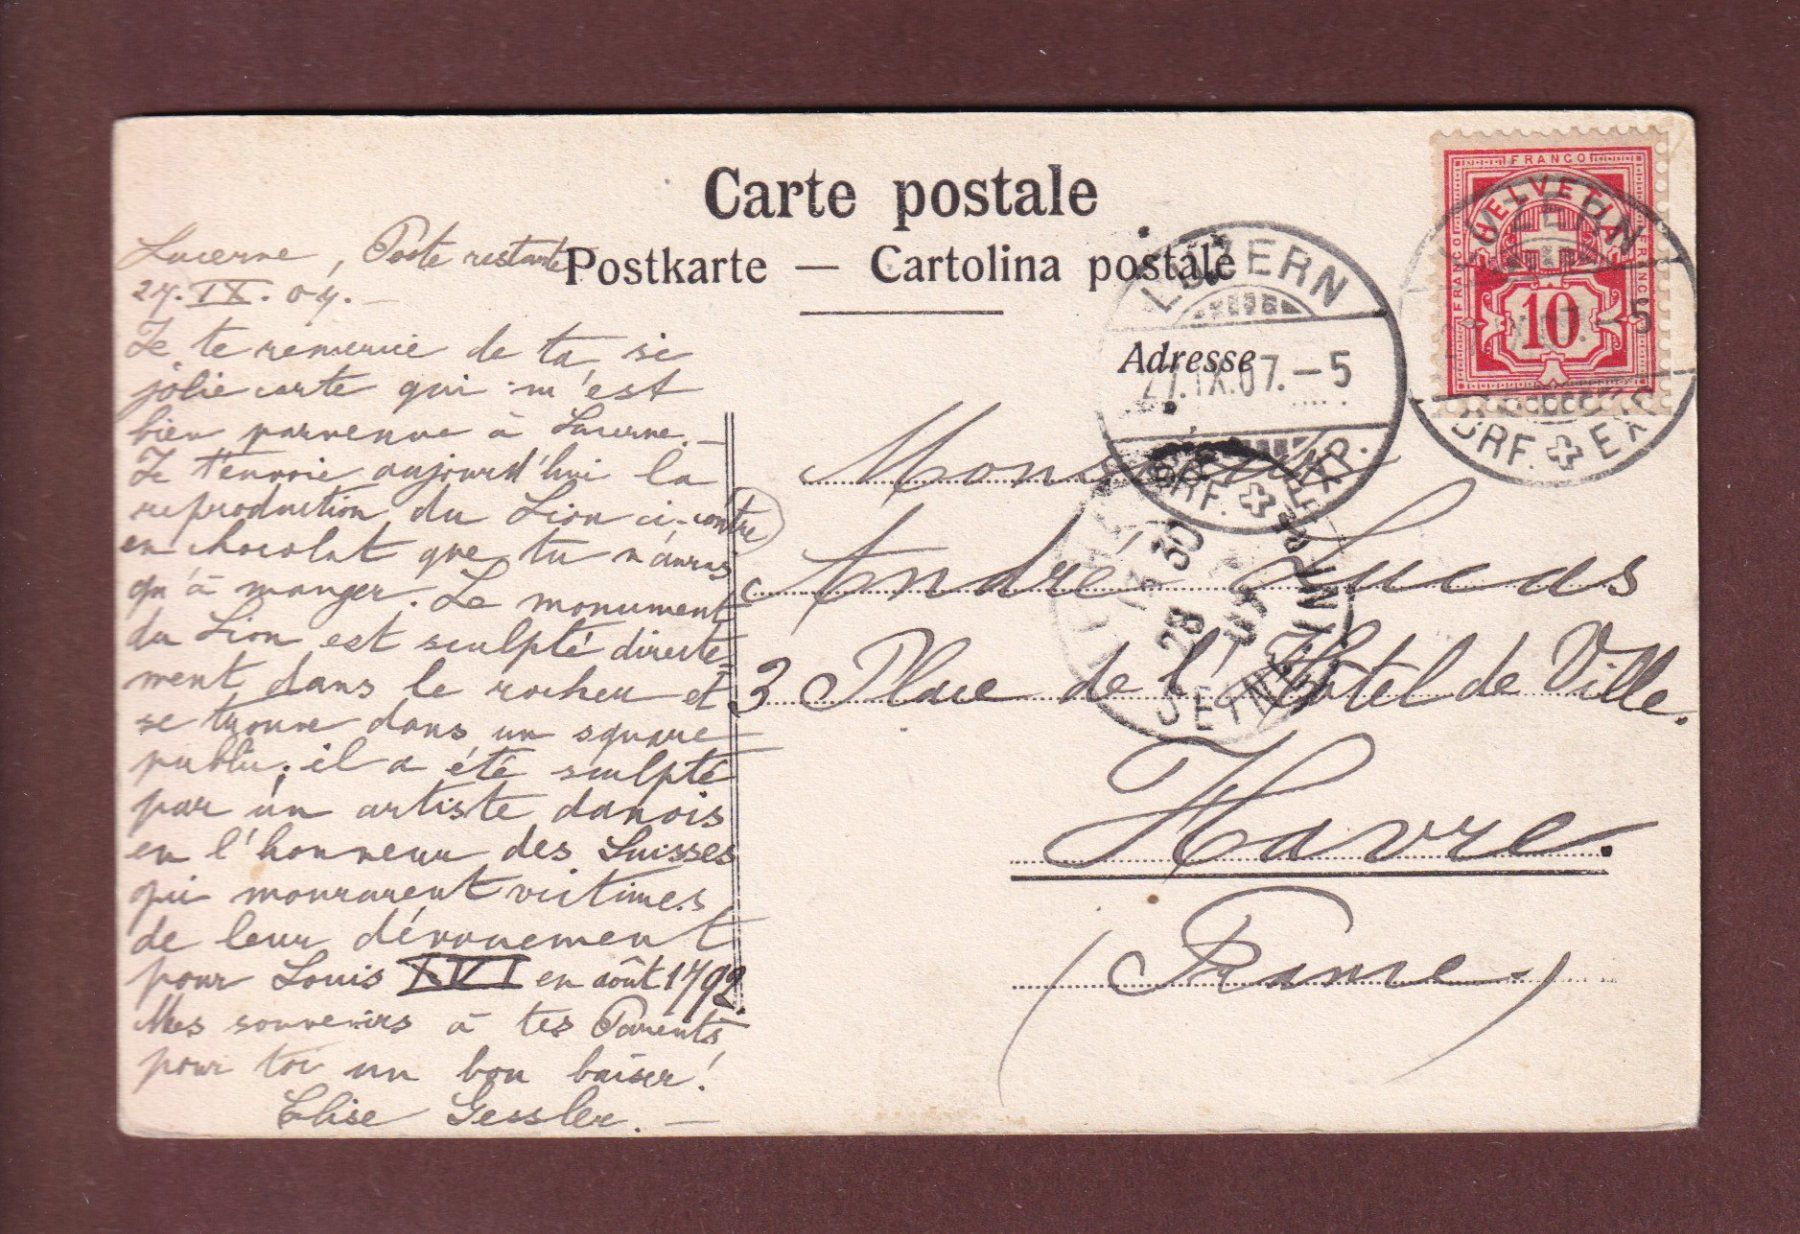 Carte postale
Postkarte — Cartolina postale
Adresse
Lucerne, Poste restante
27. IX. 07. —
Je te remercie de ta si
jolie carte qui m'est
bien parvenue à Lucerne. —
Je t'envoie aujourd'hui la
reproduction du Lion ci-contre
en chocolat que tu n'auras
qu'à manger. Le monument
du Lion est sculpté directe=
ment dans le rocher et
se trouve dans un square
public; il a été sculpté
par un artiste danois
en l'honneur des Suisses
qui moururent victimes
de leur dévouement
pour Louis XVI en août 1792.
Mes souvenirs à tes Parents
pour toi un bon baiser!
Elise Gessler. —
Monsieur
André Lucas
3 Place de l'Hôtel de Ville.
Havre.
(France)
FRANCO
FRANCO
FRANCO
HELVETIA
10
LUZERN
27.IX.07.–5
BRF. EXP.
LUZERN
IX.07.–5
BRF. EXP.
30
28
SEINE INFRE